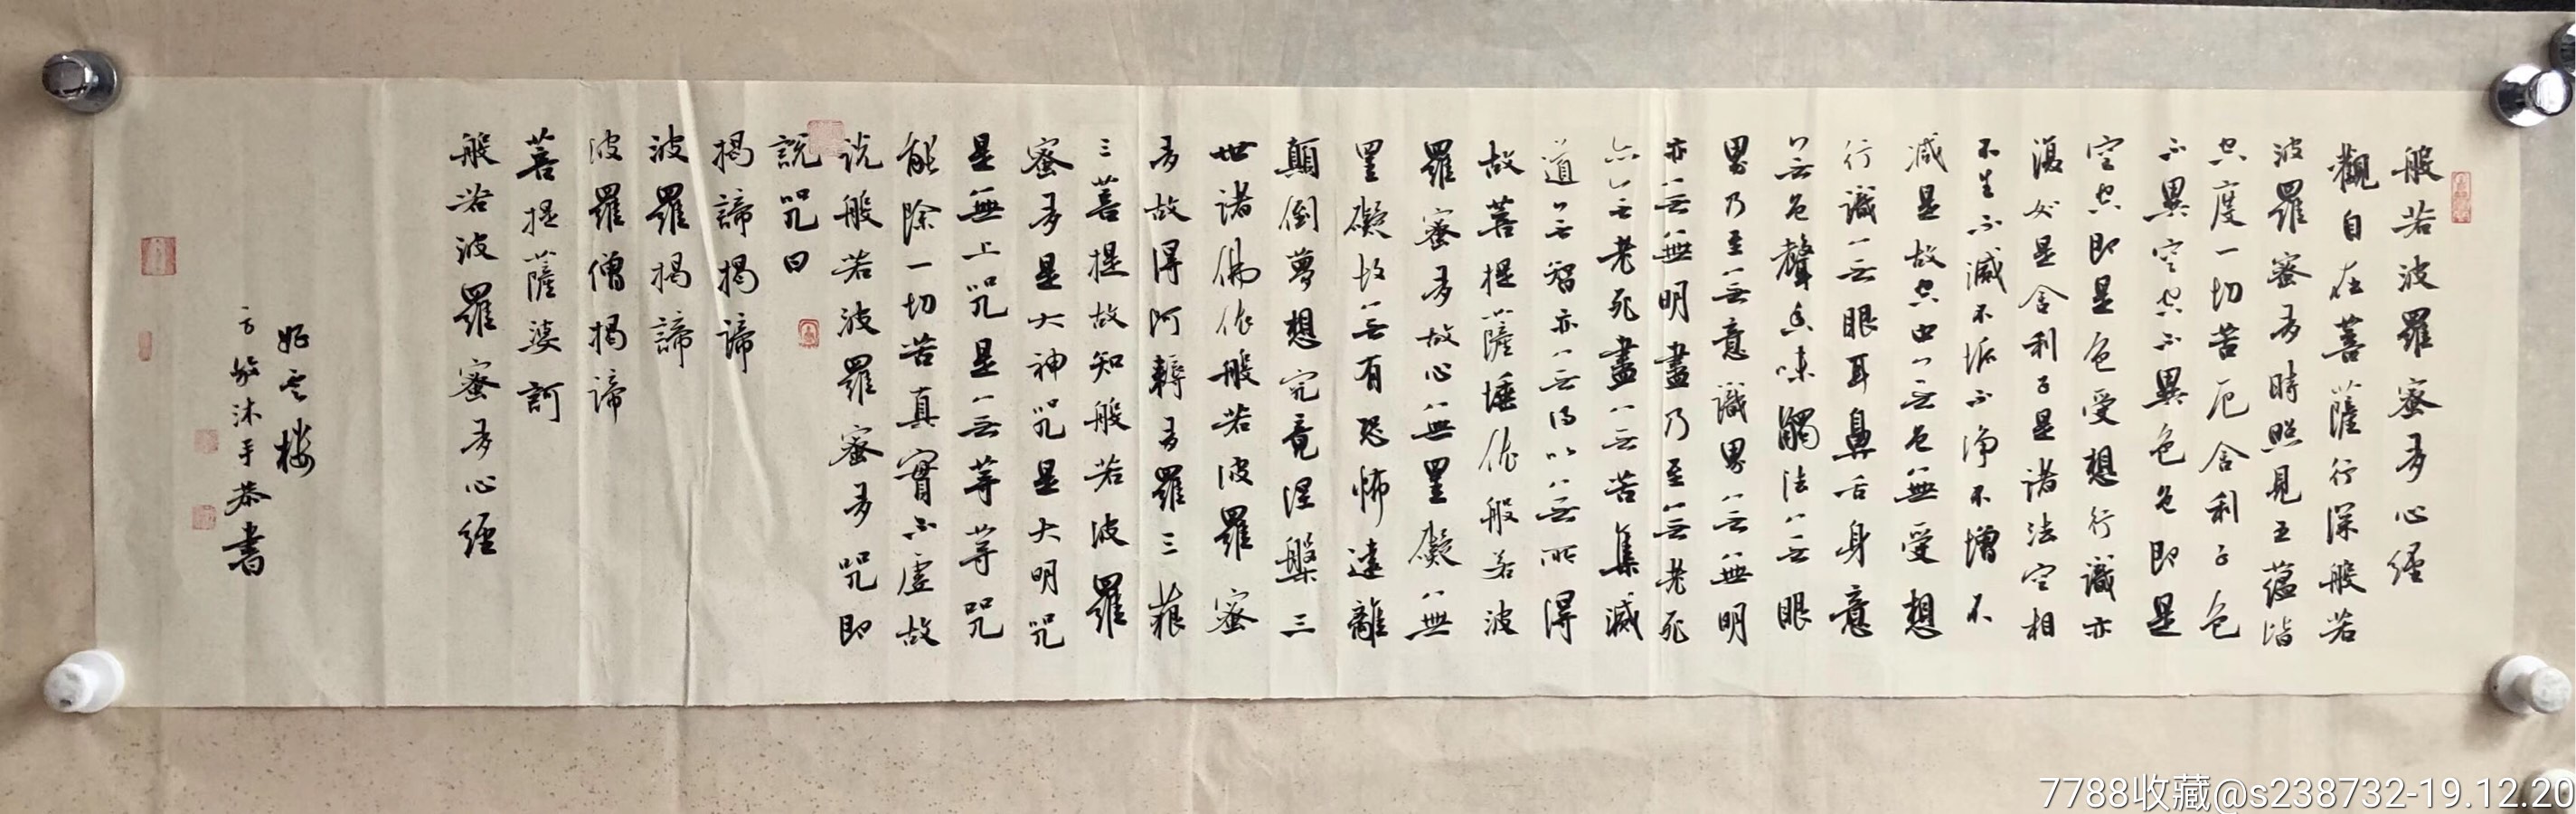 般若波羅蜜多心經
觀自在菩薩行深般若
波羅蜜多時照見五蘊皆
空度一切苦厄舍利子色
不異空空不異色色即是
空空即是色受想行識亦
復如是舍利子是諸法空相
不生不滅不垢不淨不增不
减是故空中無色無受想
行識無眼耳鼻舌身意
無色聲香味觸法無眼
界乃至無意識界無無明
亦無無明盡乃至無老死
亦無老死盡無苦集滅
道無智亦無得以無所得
故菩提薩埵依般若波
羅蜜多故心無罣礙無
罣礙故無有恐怖遠離
顛倒夢想究竟涅槃三
世諸佛依般若波羅蜜
多故得阿耨多羅三藐
三菩提故知般若波羅
蜜多是大神咒是大明咒
是無上咒是無等等咒
能除一切苦真實不虛故
说般若波羅蜜多咒即
説咒曰
揭諦揭諦
波羅揭諦
波羅僧揭諦
菩提薩婆訶
般若波羅蜜多心經
云樓
沐手恭書
7788收藏@s238732-19.12.20